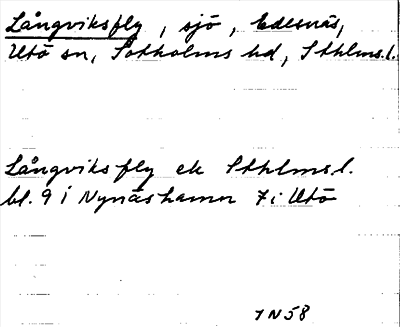 Långviksfly, sjö, Edesnäs,
Utö sn, Sotholms hd, Sthlms l.
Långviksfly ek Sthlms l.
bl. 9 I Nynäshamn 7 i Utö
7 N 58